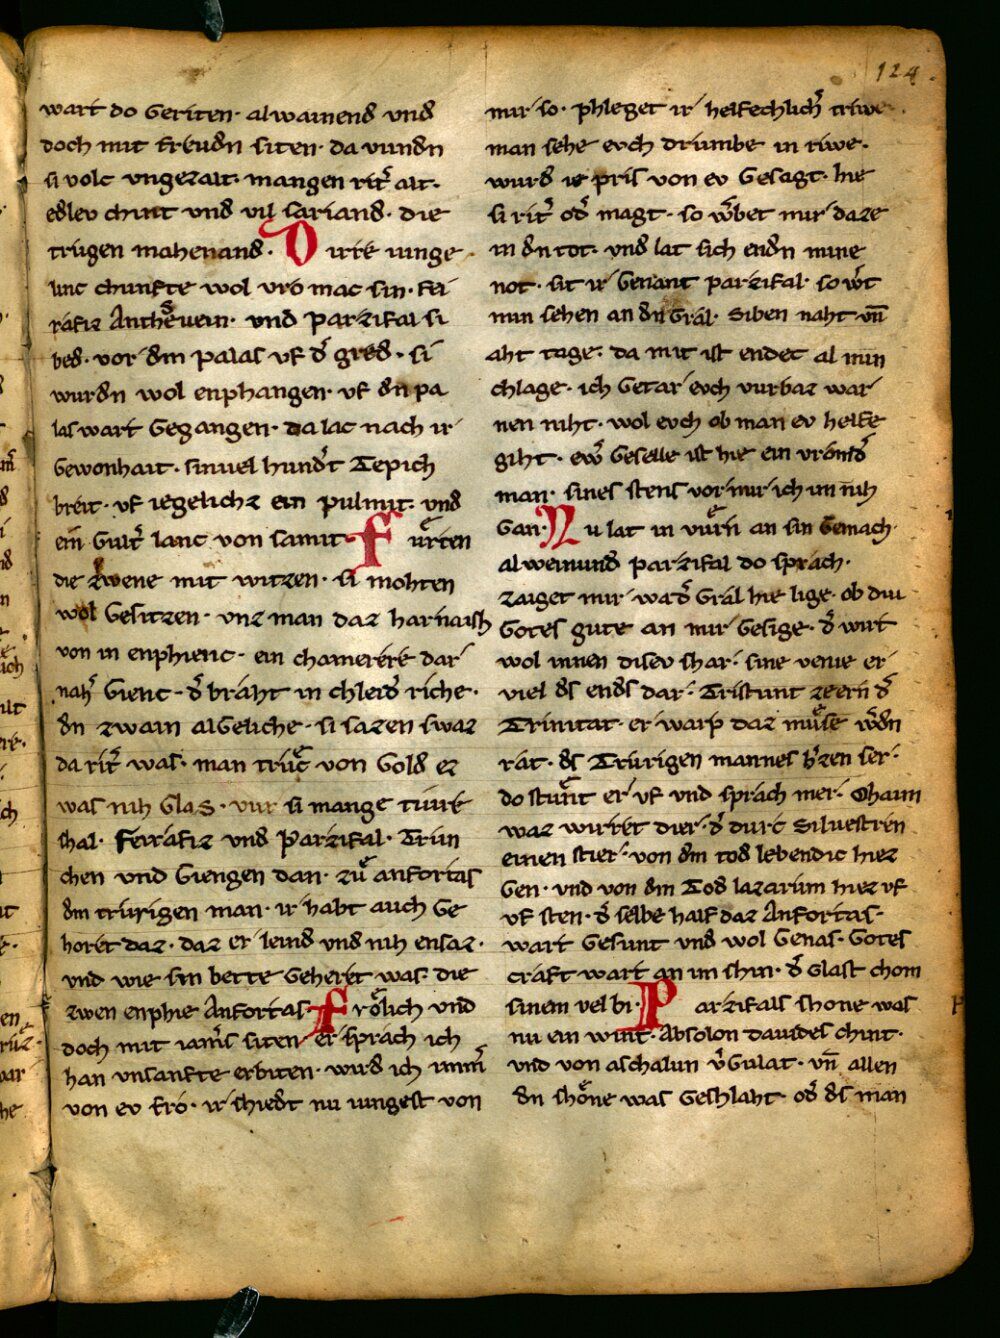 124.
wart do Geriten· al wainend vnd
doch mit freudn siten· da vundn
si volc vngezalt· mangen rit̄ alt·
edlev chint vnd vil sariand· die
trůgen mahenand· Dirre iunge
linc chunfte wol vro mac sin· fei
rafiz Anthevein· vnd parzifal si
bed· vor dm palas vf d̄ gred· si
wurdn wol enphangen· vf dn pa
las wart Gegangen· da lac nach ir
Gewonhait· sinuel hund̄t Tepich
breit· vf iegelichz ein pulmit· vnd
ein̄ Gult̄ lanc von samit· Fůrten
die zwene mit witzen· si mohten
wol Gesitzen· vnz man daz harnaish
von in enphienc· ein chamerere dar
nah̄ Gienc· d̄ bráht in chleid̄ riche·
dn zwain al Geliche· si sazen swaz
da rit̄ was· man trůc von Gold ez
was nih Glas· vur si mange tiure
shal· Feirafiz vnd Parzifal· Trun
chen vnd Giengen dan· zů anfortas
dm trurigen man· ir habt auch Ge
horet daz· daz er leind vnd nih ensaz·
vnd wie sin bette Geheret was· die
zwen enphie Anfortas· Frȯlich vnd
doch mit iam̄s siten· er sprach ich
han vnsanfte erbiten· wird ich imm̄
von ev fro· ir shiedt nu iungest von
mir so· phleget ir helfechlich̄ triwe
man sehe evch drumbe in riwe·
wurd ie pris von ev Gesagt· hie
si rit̄ od̄ magt· so w̄bet mir daze
in dn tot· vnd lat sich endn mine
not· sit ir Genant parzifal· so w̄t
min sehen an dn Gral· Siben naht vn̄
aht tage· da mit ist endec al min
chlage· ich Getar evch vurbaz war
nen niht· wol evch ob man ev helfe
giht· ew̄ Geselle ist hie ein vrȧmd̄
man· sines stens vor mir ich im nih
Gan· Nu lat in vůrn an sin Gemach·
al weinund parzifal do sprach·
zaiget mir wa d̄ Gral hie lige· ob diu
Gotes gute an mir Gesige· d̄ wirt
wol innen disev shar· sine venie er
viel ds ends dar· Tristunt ze ern d̄
Trinitat· er warp daz můse w̄dn
rat· ds Trurigen mannes h̄zen ser·
do stůnt er vf vnd sprach mer· Ohaim
waz wirret dier· d̄ durc Silvestren
einen stier· von dm tod lebendic hiez
Gen· vnd von dm Tod lazarum hiez vf
vf sten· d̄ selbe half daz Anfortas·
wart Gesunt vnd wol Genas· Gotes
craft wart an im shin· d̄ Glast chom
sinem vel bi· Parzifals shone was
nu ein wint· Absolon dauides chint·
vnd von aschalun v̄Gulat· vn̄ allen
dn shȯne was Geshlaht· od̄ ds man